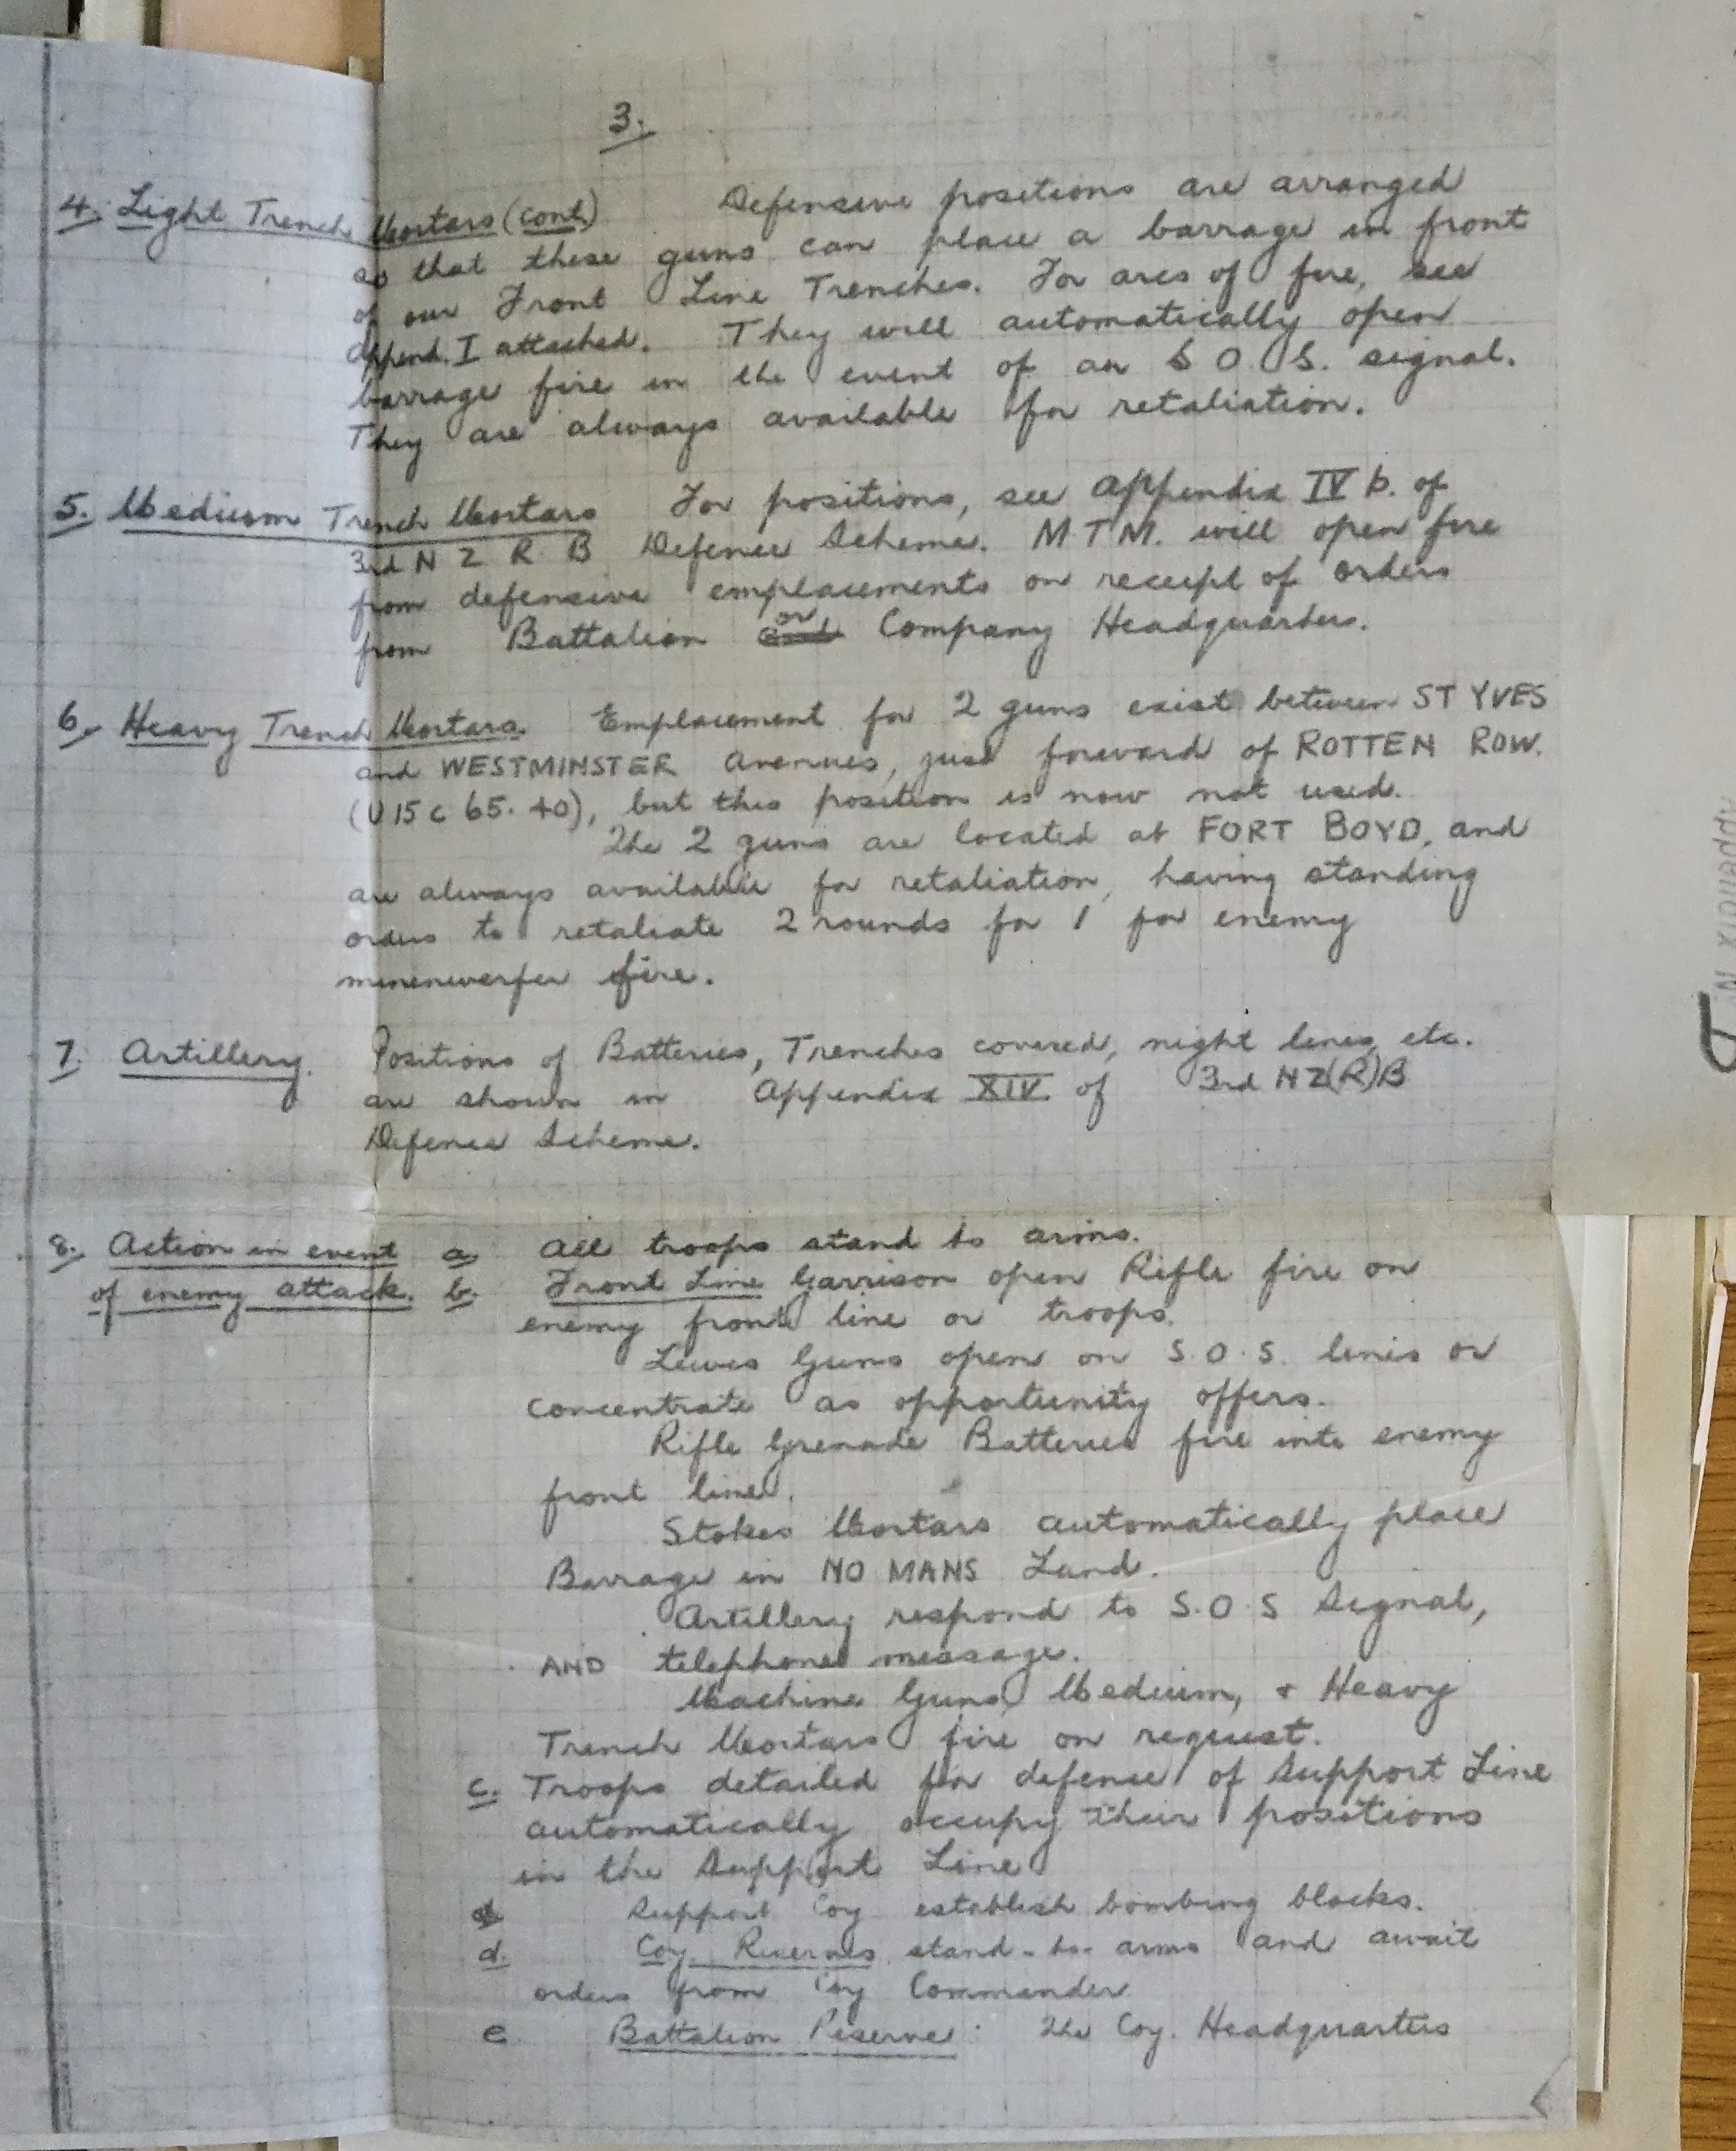 3.
4. Light Trench Mortars (cont.) Defensive positions are arranged
so that these guns can place a barrage in front
of our Front Line Trenches. For arcs of fire, see
append. I attached. They will automatically open
barrage fire in the event of an S O. S. signal.
They are always available for retaliation.
5. Medium Trench Mortars For positions, see appendix IV b. of
3rd N Z R B Defence Scheme. M T M. will open fire
from defensive emplacements on receipt of orders
from Battalion or Company Headquarters.
6. Heavy Trench Mortars. Emplacement for 2 guns exist between ST YVES
and WESTMINSTER Avenues, just forward of ROTTEN ROW.
(U 15 c 65. 40), but this position is now not used.
The 2 guns are located at FORT BOYD, and
are always available for retaliation, having standing
orders to retaliate 2 rounds for 1 for enemy
minenwerfer fire.
7. Artillery. Positions of Batteries, Trenches covered, night lines, etc.
are shown in Appendix XIV. of 3rd N Z (R) B
Defence Scheme.
8. Action in event a. All troops stand to arms.
of enemy attack. b. Front Line Garrison open Rifle fire on
enemy front line or troops.
Lewis Guns open on S. O. S. lines or
concentrate as opportunity offers.
Rifle Grenade Batteries fire into enemy
front line.
Stokes Mortars automatically place
Barrage in NO MANS Land.
Artillery respond to S. O. S Signal,
AND telephone message.
Machine Guns, Medium, & Heavy
Trench Mortars fire on request.
c. Troops detailed for defence of Support Line
automatically occupy their positions
in the Support Line
Support Coy establish bombing blocks.
d. Coy. Reserves stand-to-arms and await
orders from Coy Commander
e Battalion Reserve: The Coy. Headquarters
APPENDIX IV